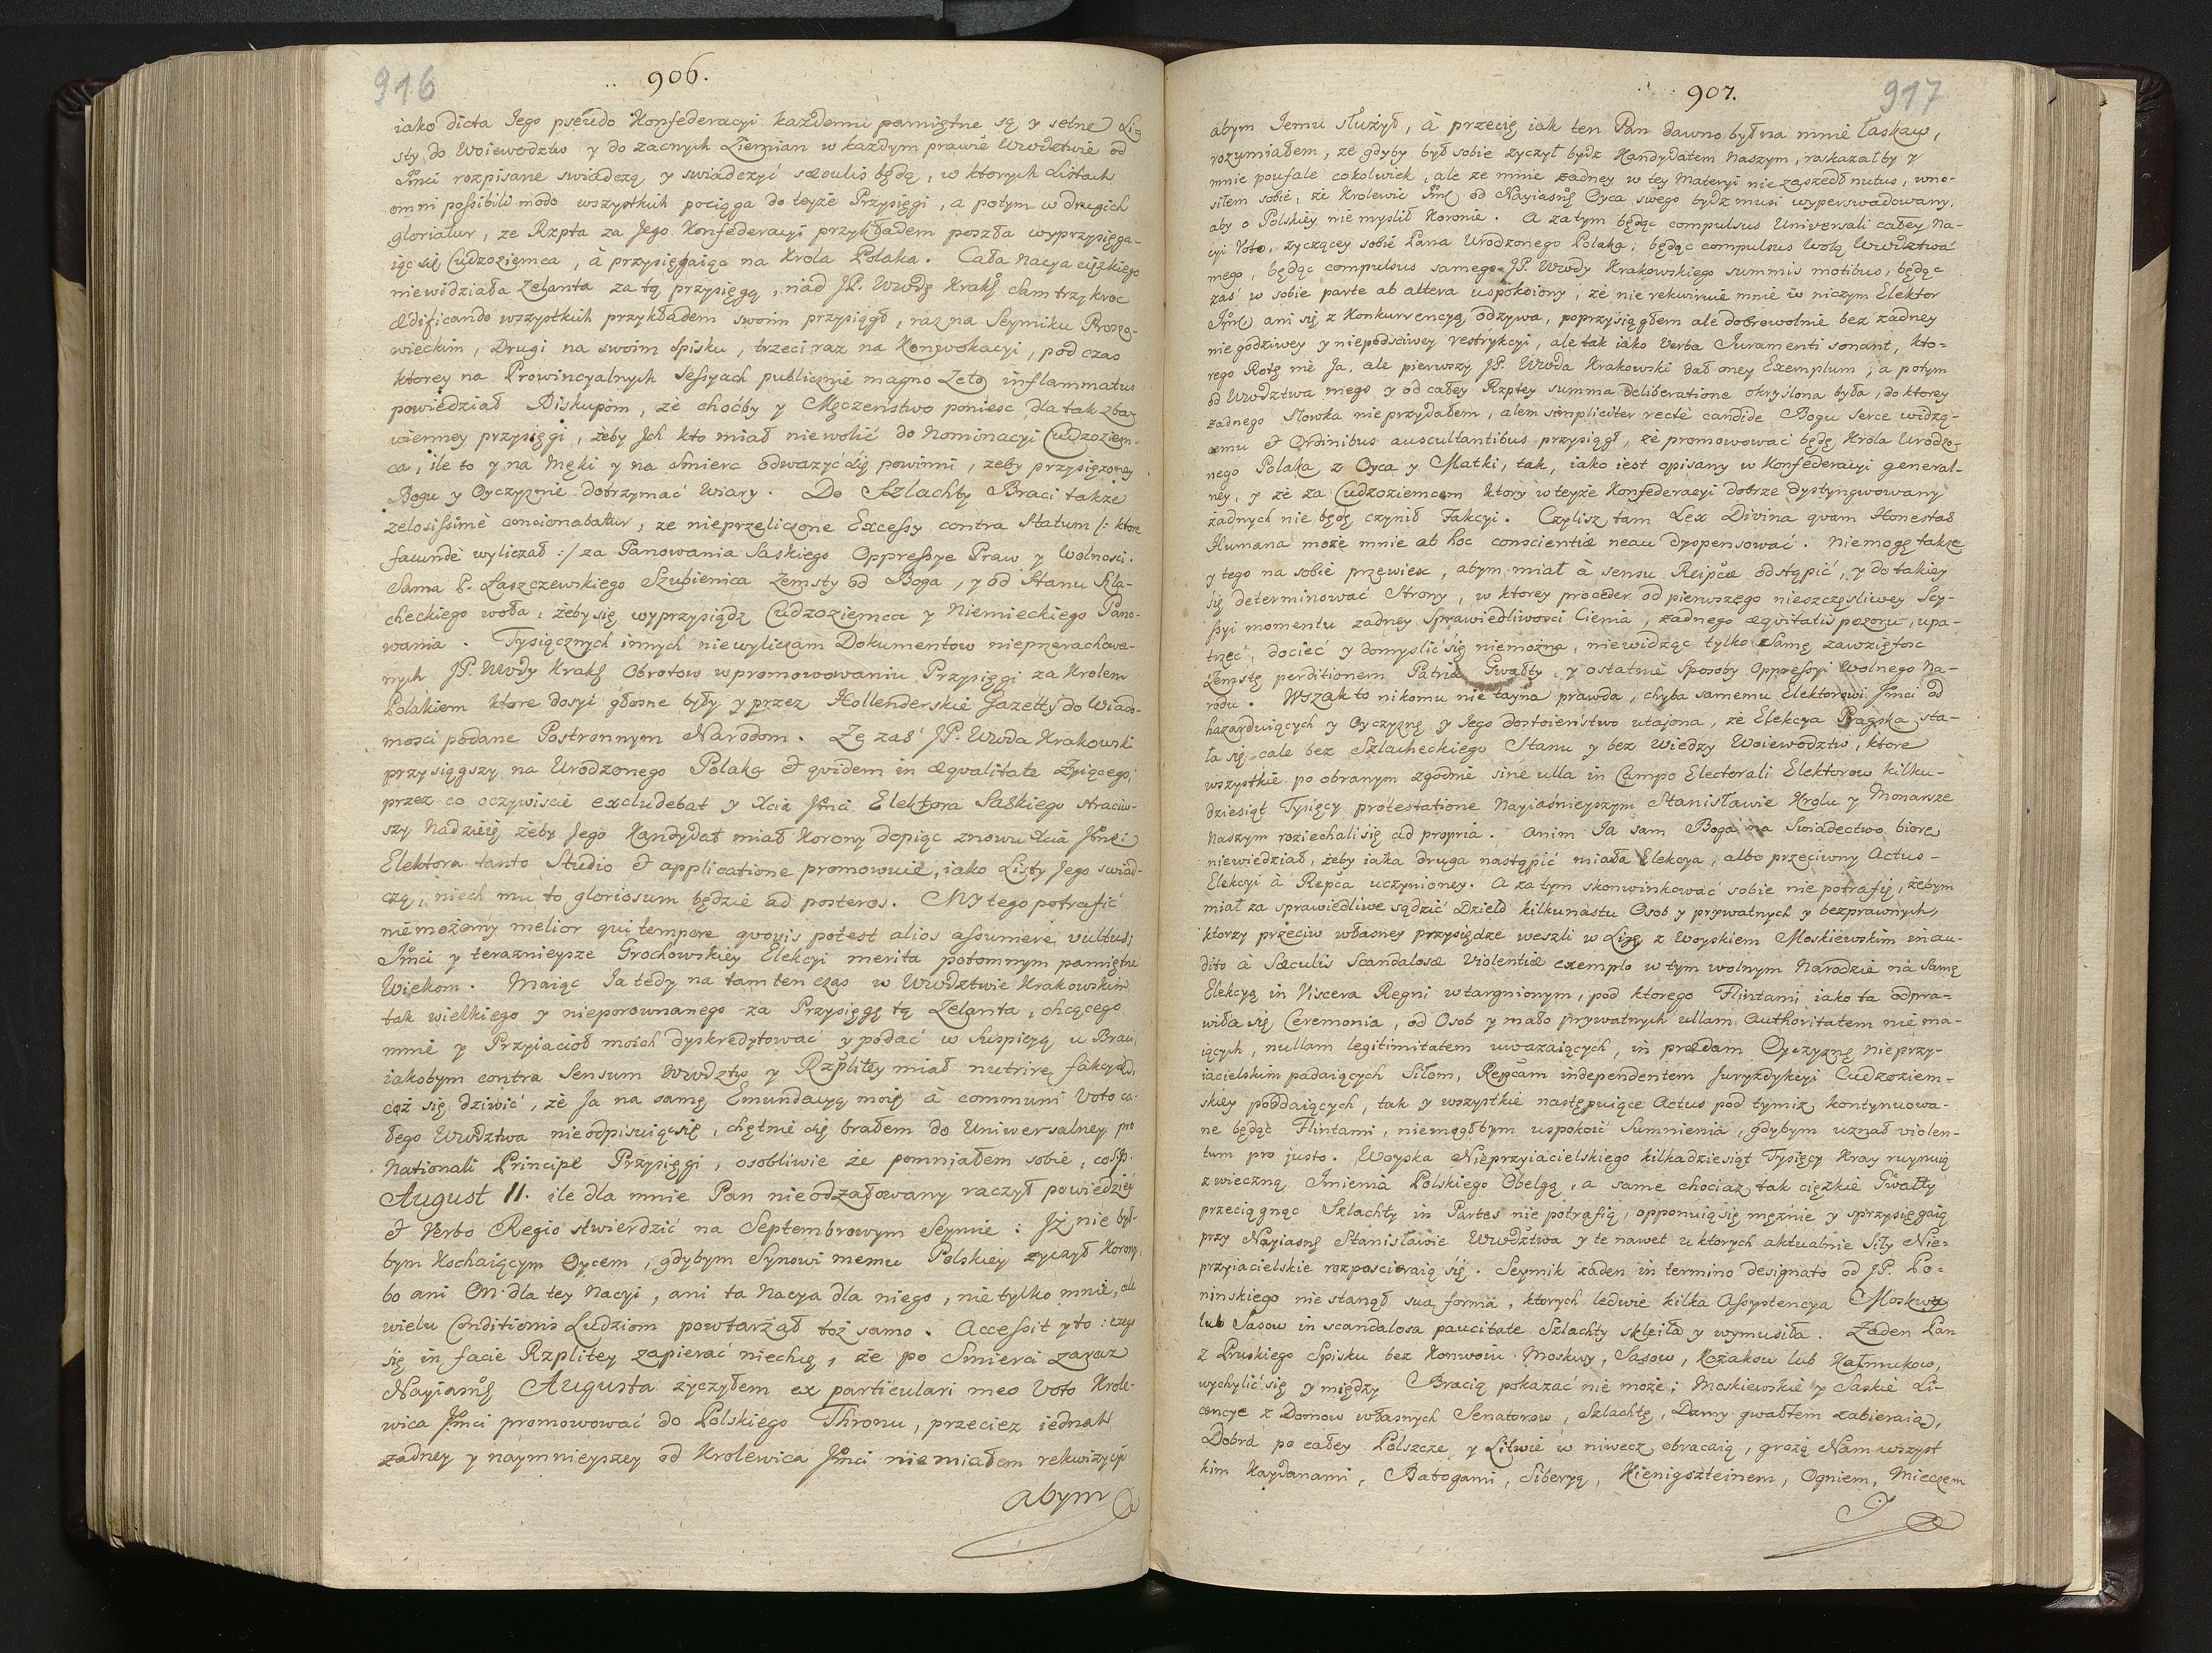 916
906.
iako dicta Jego pseudo Konfederacyi każdemu pamiętne są y setne Li=
sty do Woiewodztw y do zacnych Ziemian w każdym prawie Wwdztwie od
Jmci rozpisane swiadczą y swiadczyć sæculis będą, w ktorych Listach
omni possibili modo wszystkich pociąga do teyże Przysięgi, a potym w drugich
gloriatur, ze Rzpta za Jego Konfederacyi przykładem poszła wyprzysięga-
iąc się Cudzoziemca, à przysięgaiąc na Krola Polaka. Cała Nacya cięzkiego
niewidziała Zelanta za tą przysięgą, nad JP. Wwdę Krakg sam trzykroc
ædificando wszystkich przykładem swoim przysiągł, raz na Seymiku Proszo-
wieckim, Drugi na swoim Spisku, trzeci raz na Konwokacyi, pod czas
ktorey na Prowincyalnych Sessyach publicznie magno Zelo inflammatus
powiedział Biskupom, zè choćby y Męczenstwo poniesc dla tak zba-
wienney przysięgi, żeby Jch kto miał niewolić do Nominacyi Cudzoziem-
ca, ile to y na Męki y na Smierc odwazyć się powinni, zeby przysięzoney
Bogu y Oyczyznie dotrzymać Wiary. Do Szlachty Braci także
zelosissimè concionabatur, ze nieprzeliczone Excessy contra Statum /: ktore
facundè wyliczał :/ za Panowania Saskiego Oppressye Praw y Wolnosci.
Sama P. Łaszczewskiego Szubienica Zemsty od Boga, y od Stanu Szla-
checkiego woła, żeby się wyprzysiądz Cudzoziemca y Niemieckiego Pano-
wania. Tysiącznych innych niewyliczam Dokumentow nieprzerachowa-
nych JP. Wwdy Krakg Obrotow w promowowaniu Przysięgi za Krolem
Polakiem ktore dosyć głosne były y przez Hollenderskie Gazetty do Wiado-
mosci podane Postronnym Narodom. Ze zas JP. Wwda Krakowski
przysiągszy na Urodzonego Polaka et qvidem in æqvalitate Zyiącego,
przez co oczywiscie excludebat y Xcia Jmci Elektora Saskiego straciw-
szy Nadzieię żeby Jego Kandydat miał Korony dopiąc znowu Xcia Jmci
Elektora tanto Studio et applicatione promowuie, iako Listy Jego swiad-
czą, niech mu to gloriosum będzie ad posteros. My tego potrafić
nie możemy melior qui tempore qvovis potest alios assumere vultus;
Jmci y teraznieysze Grochowskiey Elekcyi merita potomnym pamiętne
Wiekom. Maiąc Ia tedy na tamten czas w Wwdztwie Krakowskim
tak wielkiego y nieporownanego za Przysięgę tę Zelanta, chcącego
mnie y Przyiacioł moich dyskredytować y podać w Suspicyą u Braci,
iakobym contra Sensum Wwdztw y Rzplitey miał nutrire fakcye,
coż się dziwić, żè Ja na samę Emundacyą moię à communi Voto ca-
łego Wwdztwa nieodpisuiąc się, chętnie się brałem do Uniwersalney pro
Nationali Principe Przysięgi, osobliwie że pomniałem sobie, co S.p.
August II. ile dla mnie Pan nieodzałowany raczył powiedzieć
et Verbo Regio stwierdzić na Septembrowym Seymie: Jż nie był-
bym Kochaiącym Oycem, gdybym Synowi memu Polskiey zyczył Korony,
bo ani On dla tey Nacyi, ani ta Nacya dla niego, nie tylko mnie, ale
wielu Conditionis Ludziom powtarzał toż samo. Accessit y to: czego
się in facie Rzplitey zapierać niechcę, że po Smierci zaraz
Nayiasng Augusta życzyłem ex particulari meo Voto Krole-
wica Jmci promowować do Polskiego Thronu, przeciez iednak
zadney y naymnieyszey od Krolewica Jmci niemiałem rekwizycyi
abym
917
907.
abym Jemu służył, à przecię iak ten Pan dawno był na mnie łaskaw,
rozumiałem, ze gdyby był sobie zyczył bydz Kandydatem Naszym, raskazałby y
mnie poufale cokolwiek, ale ze mnie zadney w tey Materyi niezaszedł nutus, wno-
siłem sobie, żè Krolewic Jmc od Nayiasng Oyca swego bydz musi wyperswadowany,
aby o Polskiey nie myslił Koronie. A zatym będąc compulsus Universali całey Na-
cyi Voto, życzącey sobie Pana Urodzonego Polaka, będąc compulsus Wolą Wwdztwa
mego, będąc compulsus samego JP. Wwdy Krakowskiego summis motibus, będąc
zaś w sobie parte ab altera uspokoiony, że nie rekwiruie mnie w niczym Elektor
Jmc ani się z Konkurrencyą odzywa, poprzysiągłem ale dobrowolnie bez zadney
niegodziwey y niepodsciwey restrykcyi, ale tak iako Verba Juramenti sonant, kto-
rego Rotę nie Ja, ale pierwszy JP. Wwda Krakowski dał oney Exemplum, a potym
od Wwdztwa mego y od całey Rzptey summa Deliberatione okryslona była, do ktorey
zadnego słowka nieprzydałem, alem simpliciter rectè candide Bogu serce widzą-
cemu et Ordinibus auscultantibus przysiągł, zè promowować będę Krola Urodzo-
nego Polaka z Oyca y Matki, tak, iako iest opisany w Konfederacyi general-
ney, y zè za Cudzoziemcem ktory w teyże Konfederacyi dobrze dystyngwowany
żadnych nie będę czynił Fakcyi. Czylisz tam Lex Divina qvam Honestas
Humana może mnie ab hoc conscientiæ nexu dyspensować. Niemogę takze
y tego na sobie przewiesc, abym miał à sensu Reipcæ odstąpić, y do takiey
się determinować Strony, w ktorey proceder od pierwszego nieszczęsliwey Scy-
ssyi momentu zadney Sprawiedliwosci Cienia, zadnego æqvitatis pozoru, upa-
trzec, dociec y domyslić się niemożna, niewidząc tylko samę zawziętosc
Zemstę perditionem Patriæ Gwałty, y ostatnie Sposoby Oppressyi Wolnego Na-
rodu. Wszak to nikomu nie tayna prawda, chyba samemu Elektorowi Jmci od
hazarduiących y Oyczyznę y Jego dostoieństwo utajona, że Elekcya Pragska sta-
ła się cale bez Szlacheckiego Stanu y bez Wiedzy Woiewodztw, ktore
wszystkie po obranym zgodnie sine ulla in Campo Electorali Elektorow kilku-
dziesiąt Tysięcy protestatione Nayiaśnieyszym Stanisławie Krolu y Monarsze
Naszym roziechali się ad propria. Anim Ja sam Boga na Swiadectwo biorę
niewiedział, żeby iaka druga nastąpić miała Elekcya, albo przeciwny Actus
Elekcyi à Repca uczynioney. A za tym skonwinkować sobie nie potrafię, żebym
miał za sprawiedliwe sądzić Dzieło kilkunastu Osob y prywatnych y bezprawnych,
ktorzy przeciw własney przysiędze weszli w Ligę z Woyskiem Moskiewskim inau-
dito à Sæculis Scandalosæ Violentiæ exemplo w tym wolnym Narodzie na samę
Elekcyą in Viscera Regni wtargnionym, pod ktorego Flintami iako ta odpra-
wiła się Ceremonia, od Osob y mało prywatnych ullam Authoritatem nie ma-
iących, nullam legitimitatem uwazaiących, in prædam Oyczyznę nieprzy-
iacielskim padaiących Siłom, Repcam independentem Juryzdykcyi Cudzoziem-
skiey poddaiących, tak y wszystkie następuiące Actus pod tymiz kontynuowa-
ne będąc Flintami, niemogłbym uspokoić Sumnienia, gdybym uznał violen-
tum pro justo. Woyska Nieprzyiacielskiego kilkadziesiąt Tysięcy Kray ruynuią
z wieczną Jmienia Polskiego Obelgą, a same chociaz tak cięzkie Gwałty
przeciągnąc Szlachty in Partes nie potrafią, opponuią się męznie y sprzysięgaią
przy Nayiasng Stanisławie Wwdztwa y te nawet u ktorych aktualnie Siły Nie-
przyiacielskie rozposcieraią się. Seymik zaden in termino designato od JP. Po-
ninskiego nie stanął sua forma, ktorych ledwie kilka Assystencya Moskwy
lub Sasow in scandalosa paucitate Szlachty skleiła y wymusiła. Zaden Pan
z Pruskiego Spisku bez Konwoiu Moskwy, Sasow, Kozakow lub Kałmukow,
wychylić się y między Bracią pokazać nie może; Moskiewskie y Saskie Li-
cencye z Domow własnych Senatorow, Szlachtę, Damy gwałtem zabieraią,
Dobra po całey Polszcze y Litwie w niwecz obracaią, grożą Nam wszyst
kim Kaydanami, Batogami, Siberyą, Kienigszteinem, Ogniem, Mieczem
J